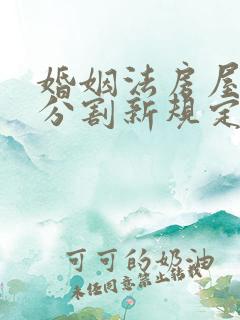 婚姻法房屋
分割新规定
可可的奶油
未经同意禁止转载